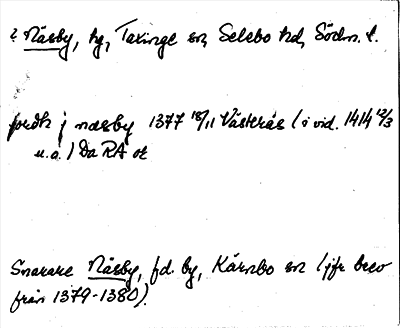 ? Näsby, hg, Taxinge sn, Selebo hd, Södm. l.
jordh j næsby 1377 18/11 Västerås (i vid. 1414 12/3
u.a.) Da RA or
Snarare Näsby, fd. by, Kärnbo sn (jfr brev
från 1379-1380).